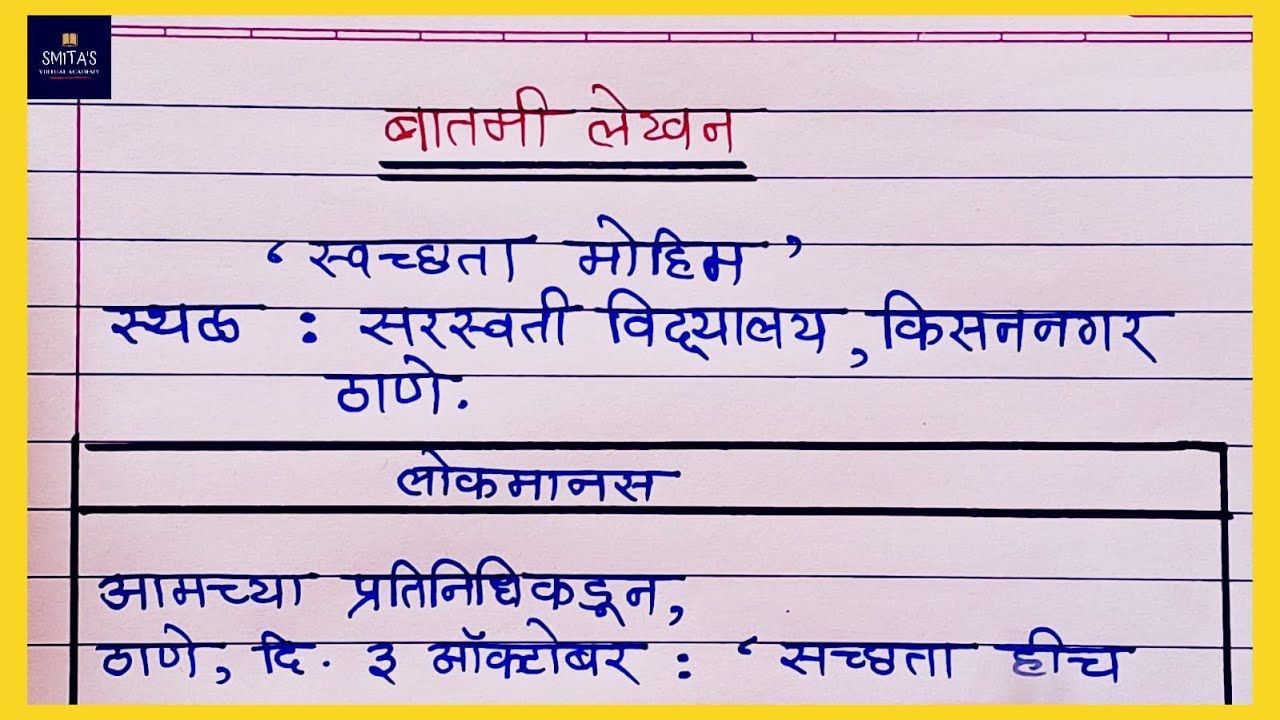 SMITA'S
VIRTUAL ACADEMY
बातमी लेखन
‘स्वच्छता मोहिम’
स्थळ : सरस्वती विद्यालय, किसननगर
ठाणे.
लोकमानस
आमच्या प्रतिनिधिकडून,
ठाणे, दि. ३ ऑक्टोबर : ‘सच्छता हीच